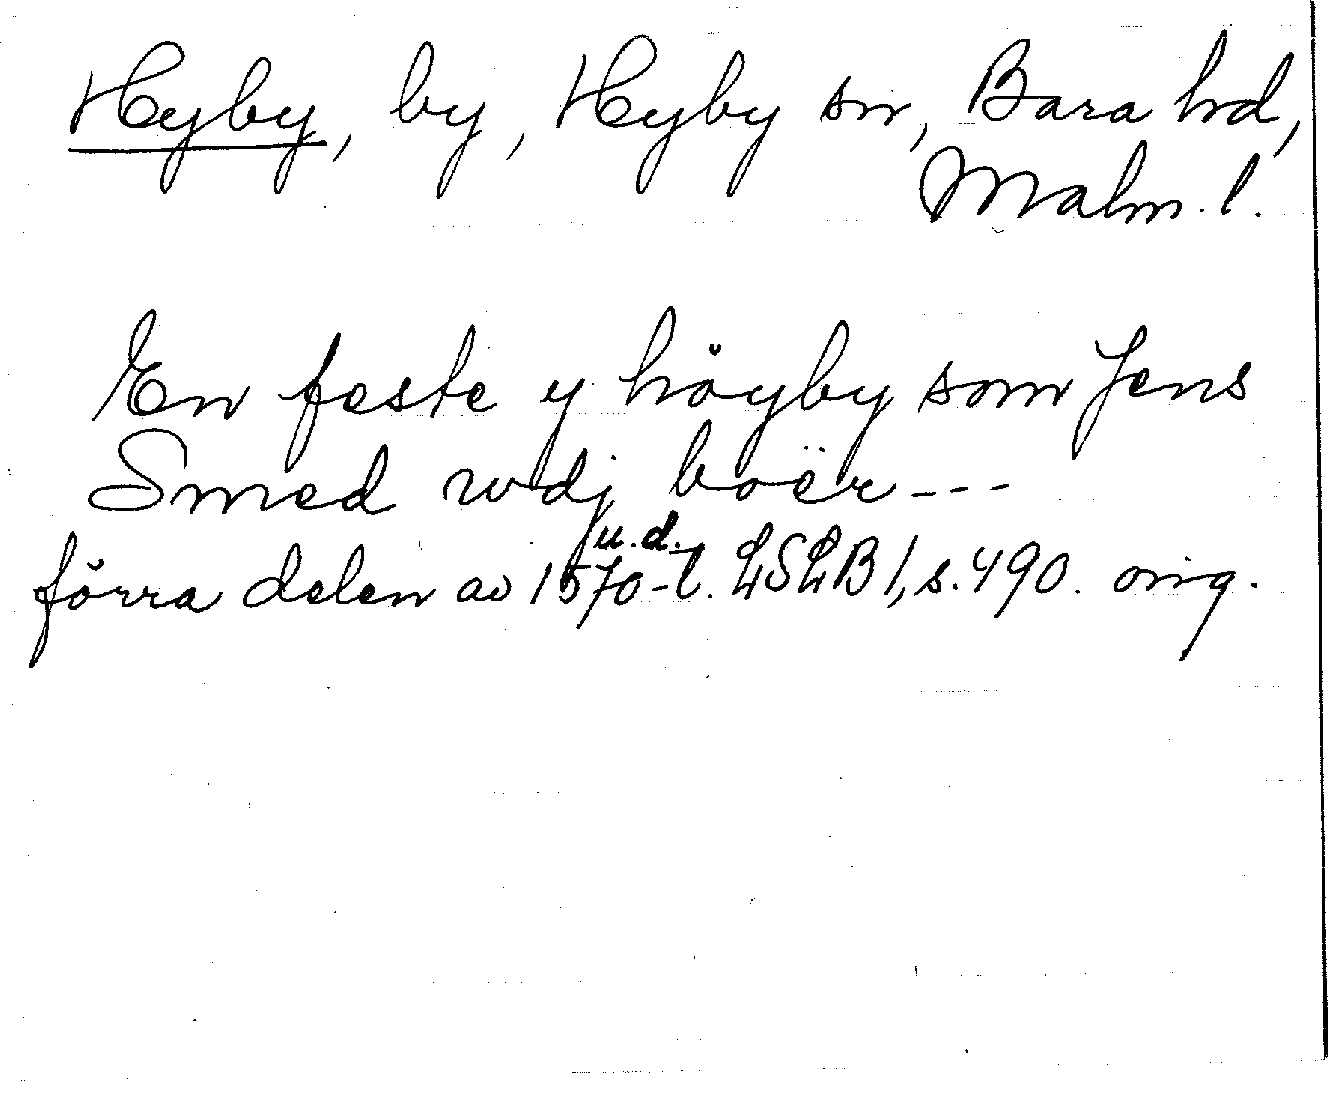 Hyby, by, Hyby sn, Bara hd,
Malm. l.
En feste y höyby som Jens
Smed wdj boër ---
u.d.
förra delen av 1570-t. LSLB 1, s. 490. orig.